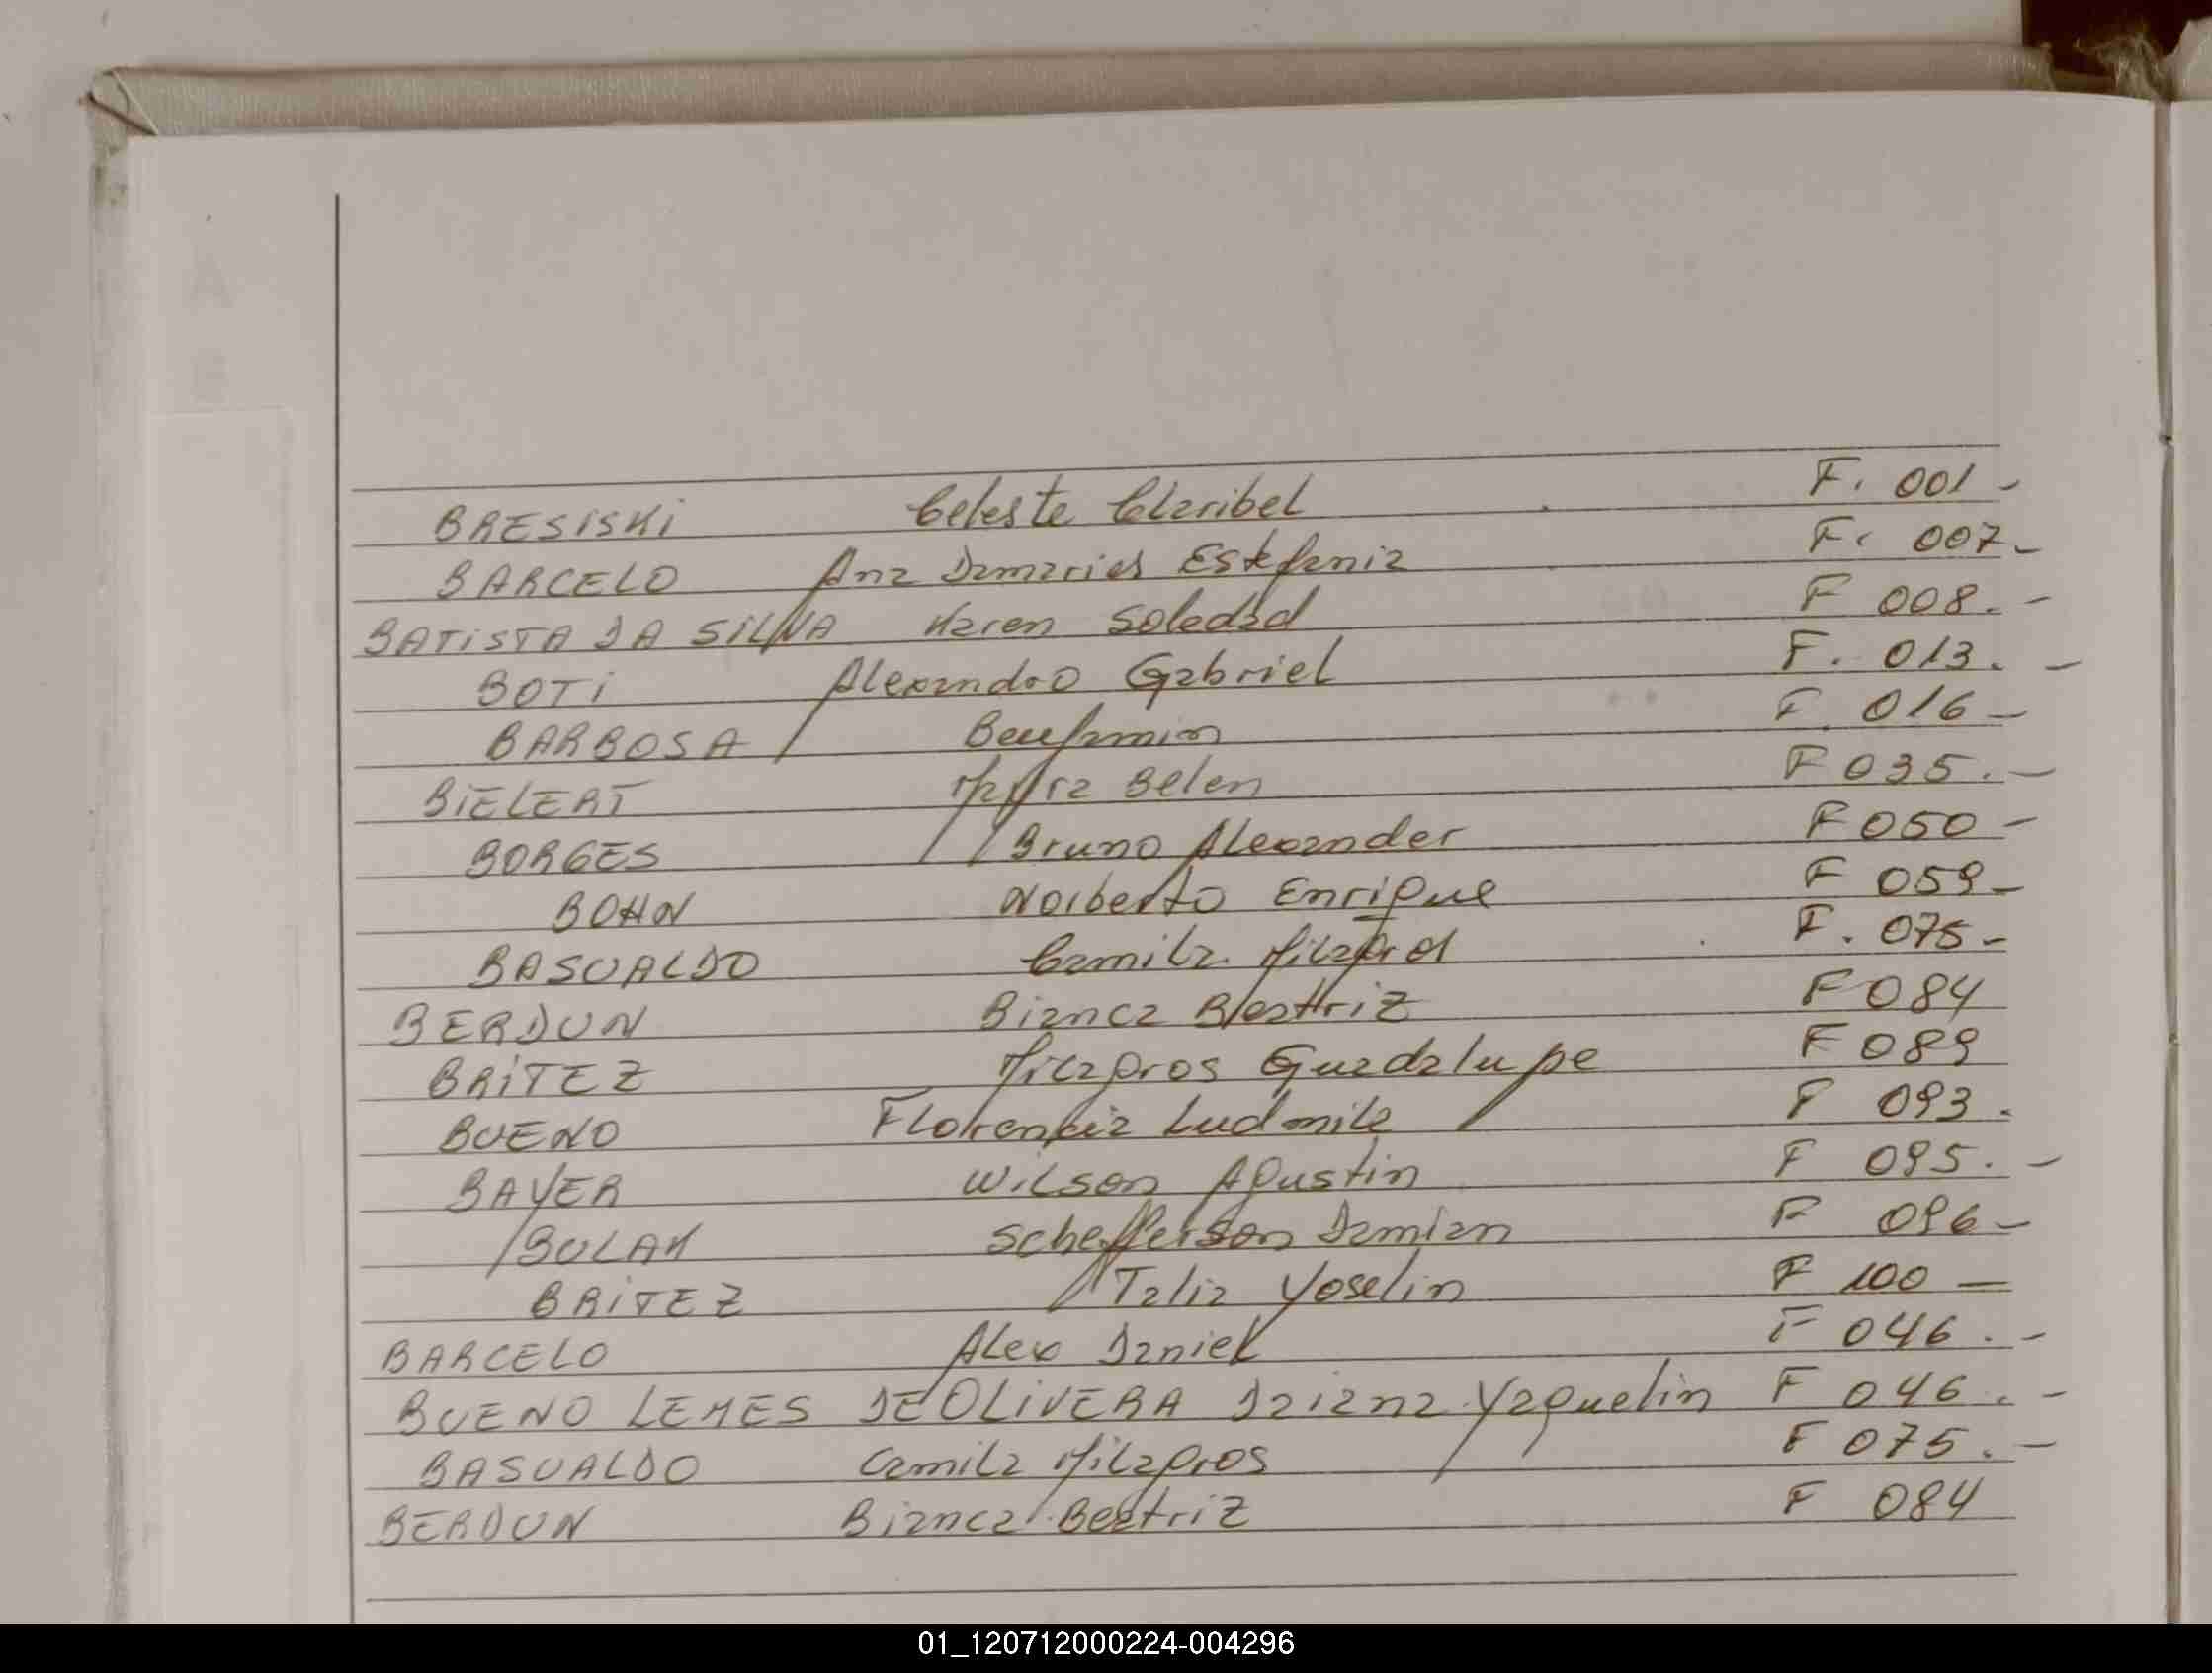 A
B
BRESISKI Celeste Claribel F. 001 -
BARCELO Ana Damaries Estefania F. 007 -
BATISTA DA SILVA Karen Soledad F 008. -
BOTI Alexandro Gabriel F. 013. -
BARBOSA Benjamin F. 016 -
BIELERT Maira Belen F 035. -
BORGES Bruno Alexander F 050 -
BOHN Norberto Enrique F 059 -
BASUALDO Camila Milagros F. 075 -
BERDUN Bianca Beatriz F 084
BRITEZ Milagros Guadalupe F 089
BUENO Florencia Ludmila F 093.
BAYER Wilson Agustin F 095. -
BULAK Schefferson Damian F 096 -
BRITEZ Talia Yoselin F 100 -
BARCELO Alex Daniel F 046. -
BUENO LEMES DE OLIVERA Daiana Yaquelin F 046. -
BASUALDO Camila Milagros F 075. -
BERDUN Bianca Beatriz F 084
01_120712000224-004296